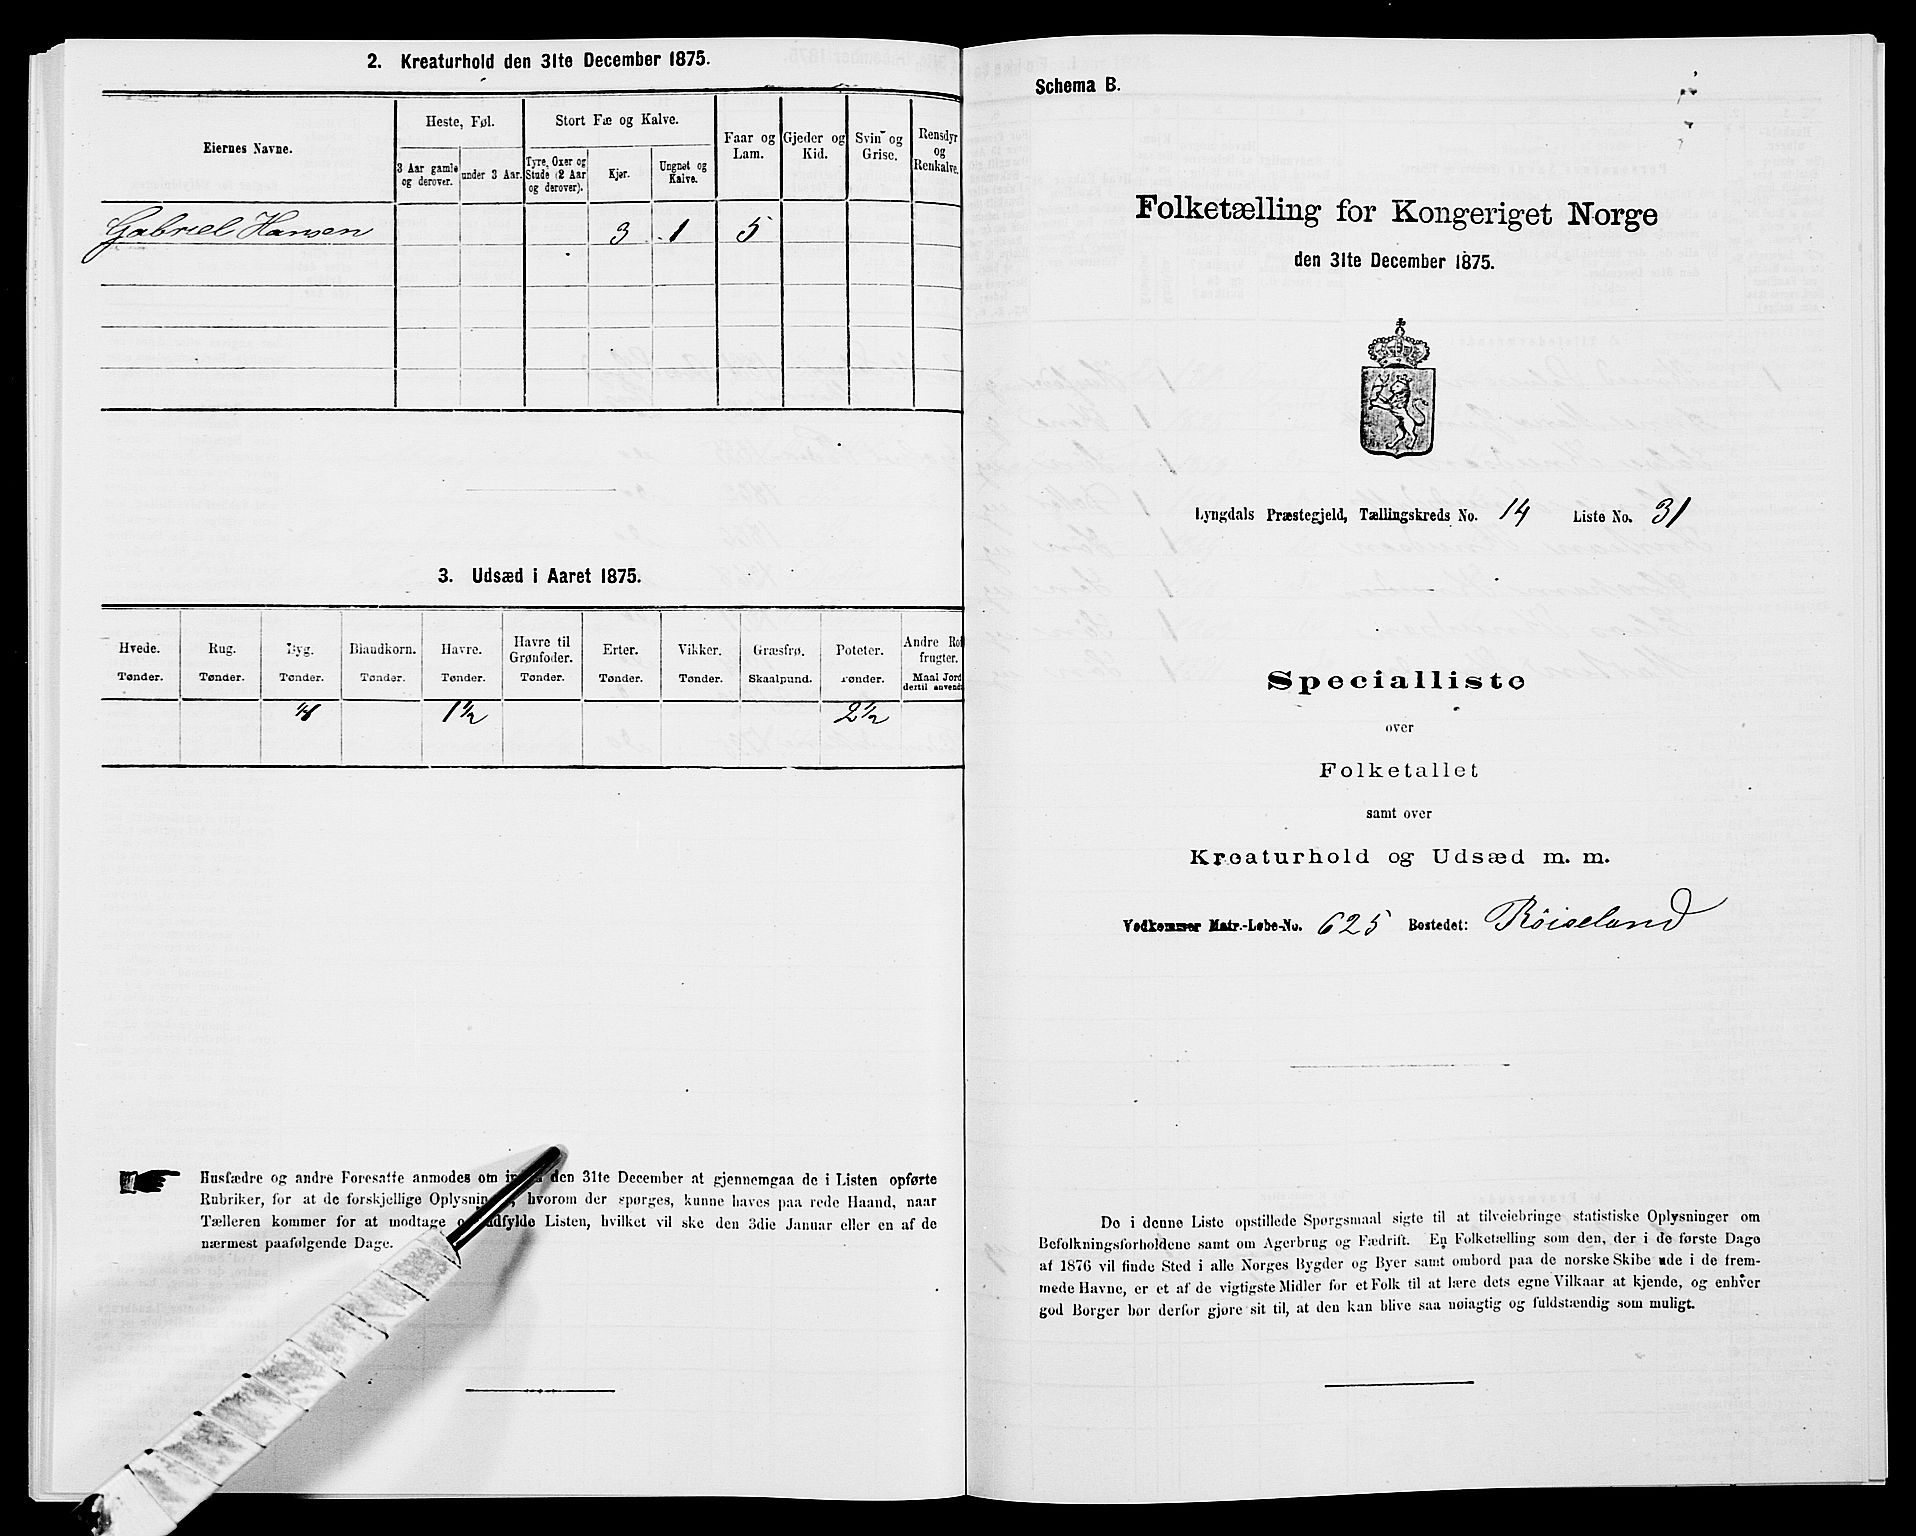 2. Kreaturhold den 31te December 1875.
Eiernes Navne.
Heste, Føl.
Stort Fæ og Kalve.
3 Aar gamle og derover.
under 3 Aar.
Tyre, Oxer og Stude (2 Aar og derover).
Kjør.
Ungnøt og Kalve.
Faar og Lam.
Gjeder og Kid.
Svin og Grise.
Rensdyr og Renkalve.
Gabriel Hansen 3 1 5
3. Udsæd i Aaret 1875.
Hvede. Rug. Byg. Blandkorn. Havre. Havre til Grønfoder. Erter. Vikker. Græsfrø. Poteter. Andre Rodfrugter.
Tønder. Tønder. Tønder. Tønder. Tønder. Tønder. Tønder. Tønder. Skaalpund. Tønder. Maal Jord dertil anvendt
1½ 2½
Husfædre og andre Foresatte anmodes om inden den 31te December at gjennemgaa de i Listen opførte
Rubriker, for at de forskjellige Oplysninger, hvorom der spørges, kunne haves paa rede Haand, naar
Tælleren kommer for at modtage og udfylde Listen, hvilket vil ske den 3die Januar eller en af de
nærmest paafølgende Dage.
Schema B.
Folketælling for Kongeriget Norge
den 31te December 1875.
Lyngdals Præstegjeld, Tællingskreds No. 14 Liste No. 31
Specialliste
over
Folketallet
samt over
Kreaturhold og Udsæd m. m.
Vedkommer Matr.-Løbe-No. 625 Bostedet: Röiseland
De i denne Liste opstillede Spørgsmaal sigte til at tilveiebringe statistiske Oplysninger om
Befolkningsforholdene samt om Agerbrug og Fædrift. En Folketælling som den, der i de første Dage
af 1876 vil finde Sted i alle Norges Bygder og Byer samt ombord paa de norske Skibe ude i de frem-
mede Havne, er et af de vigtigste Midler for et Folk til at lære dets egne Vilkaar at kjende, og enhver
god Borger bør derfor gjøre sit til, at den kan blive saa nøiagtig og fuldstændig som muligt.